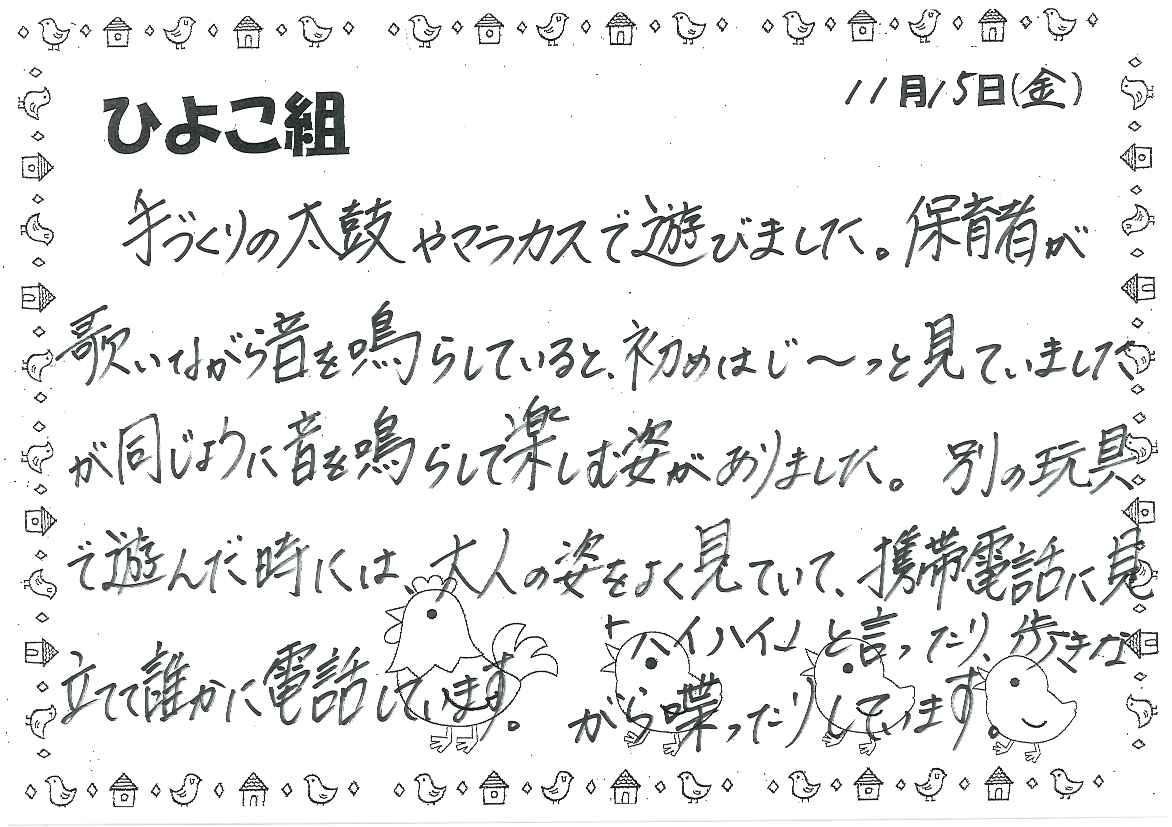 11月15日(金)
ひよこ組
手づくりの太鼓やマラカスで遊びました。保育者が
歌いながら音を鳴らしていると、初めはじ〜っと見ていました
が同じように音を鳴らして楽しむ姿がありました。別の玩具
で遊んだ時には、大人の姿をよく見ていて、携帯電話に見
立てて誰かに電話しています。
「ハイハイ」と言ったり、歩きな
がら喋ったりしています。